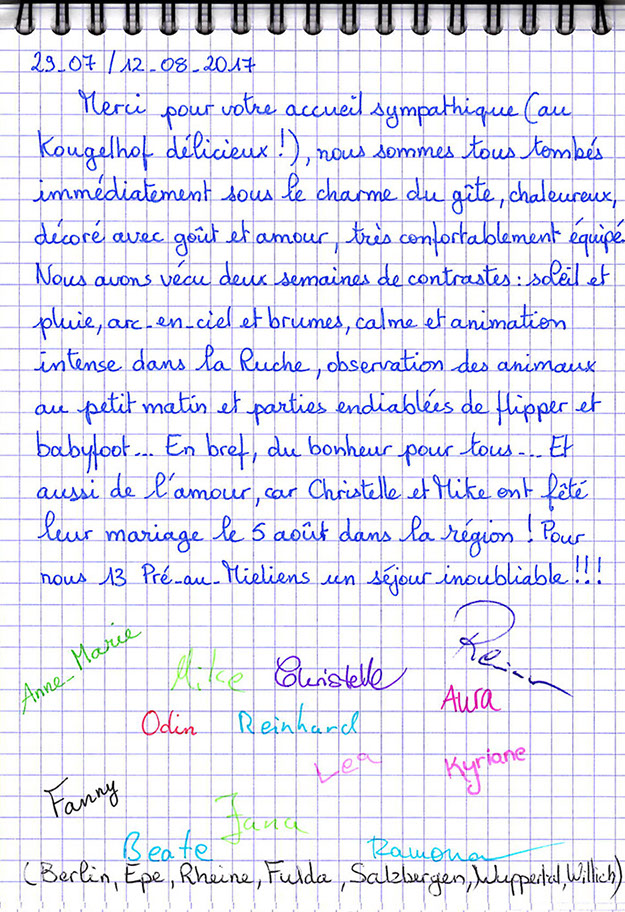 29-07/12-08-2017
Merci pour votre accueil sympathique (au
Kougelhof délicieux !), nous sommes tous tombés
immédiatement sous le charme du gîte, chaleureux,
décoré avec goût et amour, très confortablement équipé.
Nous avons vécu deux semaines de contrastes : soleil et
pluie, arc-en-ciel et brumes, calme et animation
intense dans la Ruche, observation des animaux
au petit matin et parties endiablées de flipper et
babyfoot... En bref, du bonheur pour tous... Et
aussi de l'amour, car Christelle et Mike ont fêté
leur mariage le 5 août dans la région ! Pour
nous 13 Pré-au-Mieliens un séjour inoubliable !!!
Anne-Marie Mike Christelle
Odin Reinhard Aura
Lea Kyriane
Fanny Jana
Beate Ramona
(Berlin, Epe, Rheine, Fulda, Salzbergen, Wuppertal, Willich)